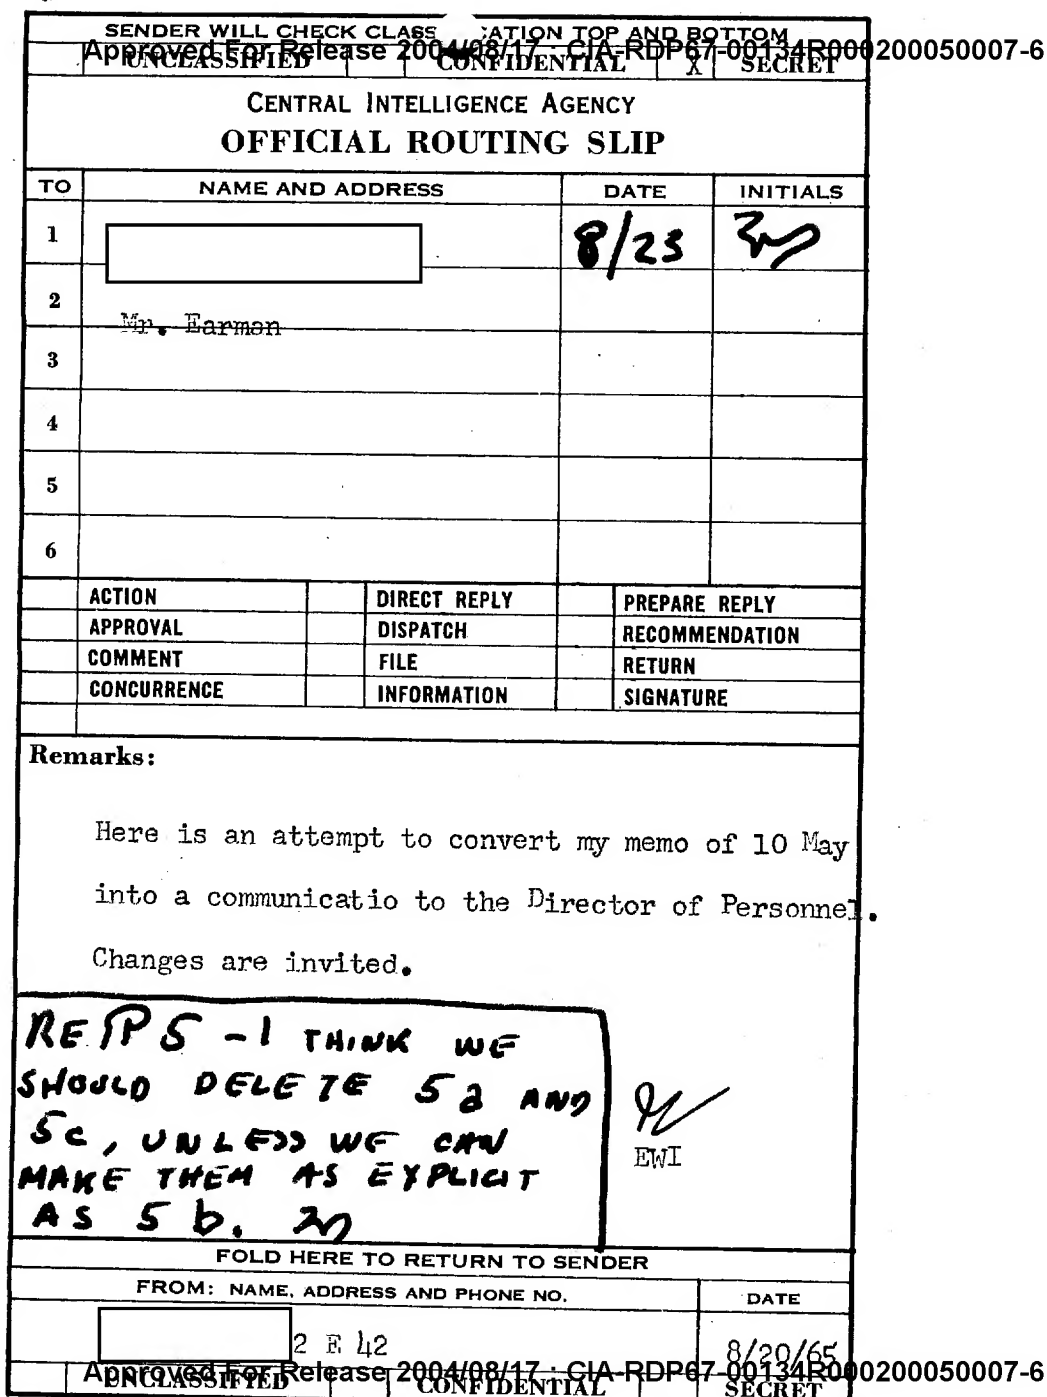 SENDER WILL CHECK CLASS CATION TOP AND BOTTOM
Approved For Release 2004/08/17 : CIA-RDP67-00134R000200050007-6
UNCLASSIFIED CONFIDENTIAL X SECRET
CENTRAL INTELLIGENCE AGENCY
OFFICIAL ROUTING SLIP
TO NAME AND ADDRESS DATE INITIALS
1 8/23
2
Mr. Earman
3
4
5
6
ACTION DIRECT REPLY PREPARE REPLY
APPROVAL DISPATCH RECOMMENDATION
COMMENT FILE RETURN
CONCURRENCE INFORMATION SIGNATURE
Remarks:
Here is an attempt to convert my memo of 10 May
into a communicatio to the Director of Personnel.
Changes are invited.
RE P 5 - I THINK WE
SHOULD DELETE 5a AND
5c, UNLESS WE CAN
MAKE THEM AS EXPLICIT
AS 5b.
EWI
FOLD HERE TO RETURN TO SENDER
FROM: NAME, ADDRESS AND PHONE NO. DATE
2 E 42 8/20/65
Approved For Release 2004/08/17 : CIA-RDP67-00134R000200050007-6
UNCLASSIFIED CONFIDENTIAL SECRET